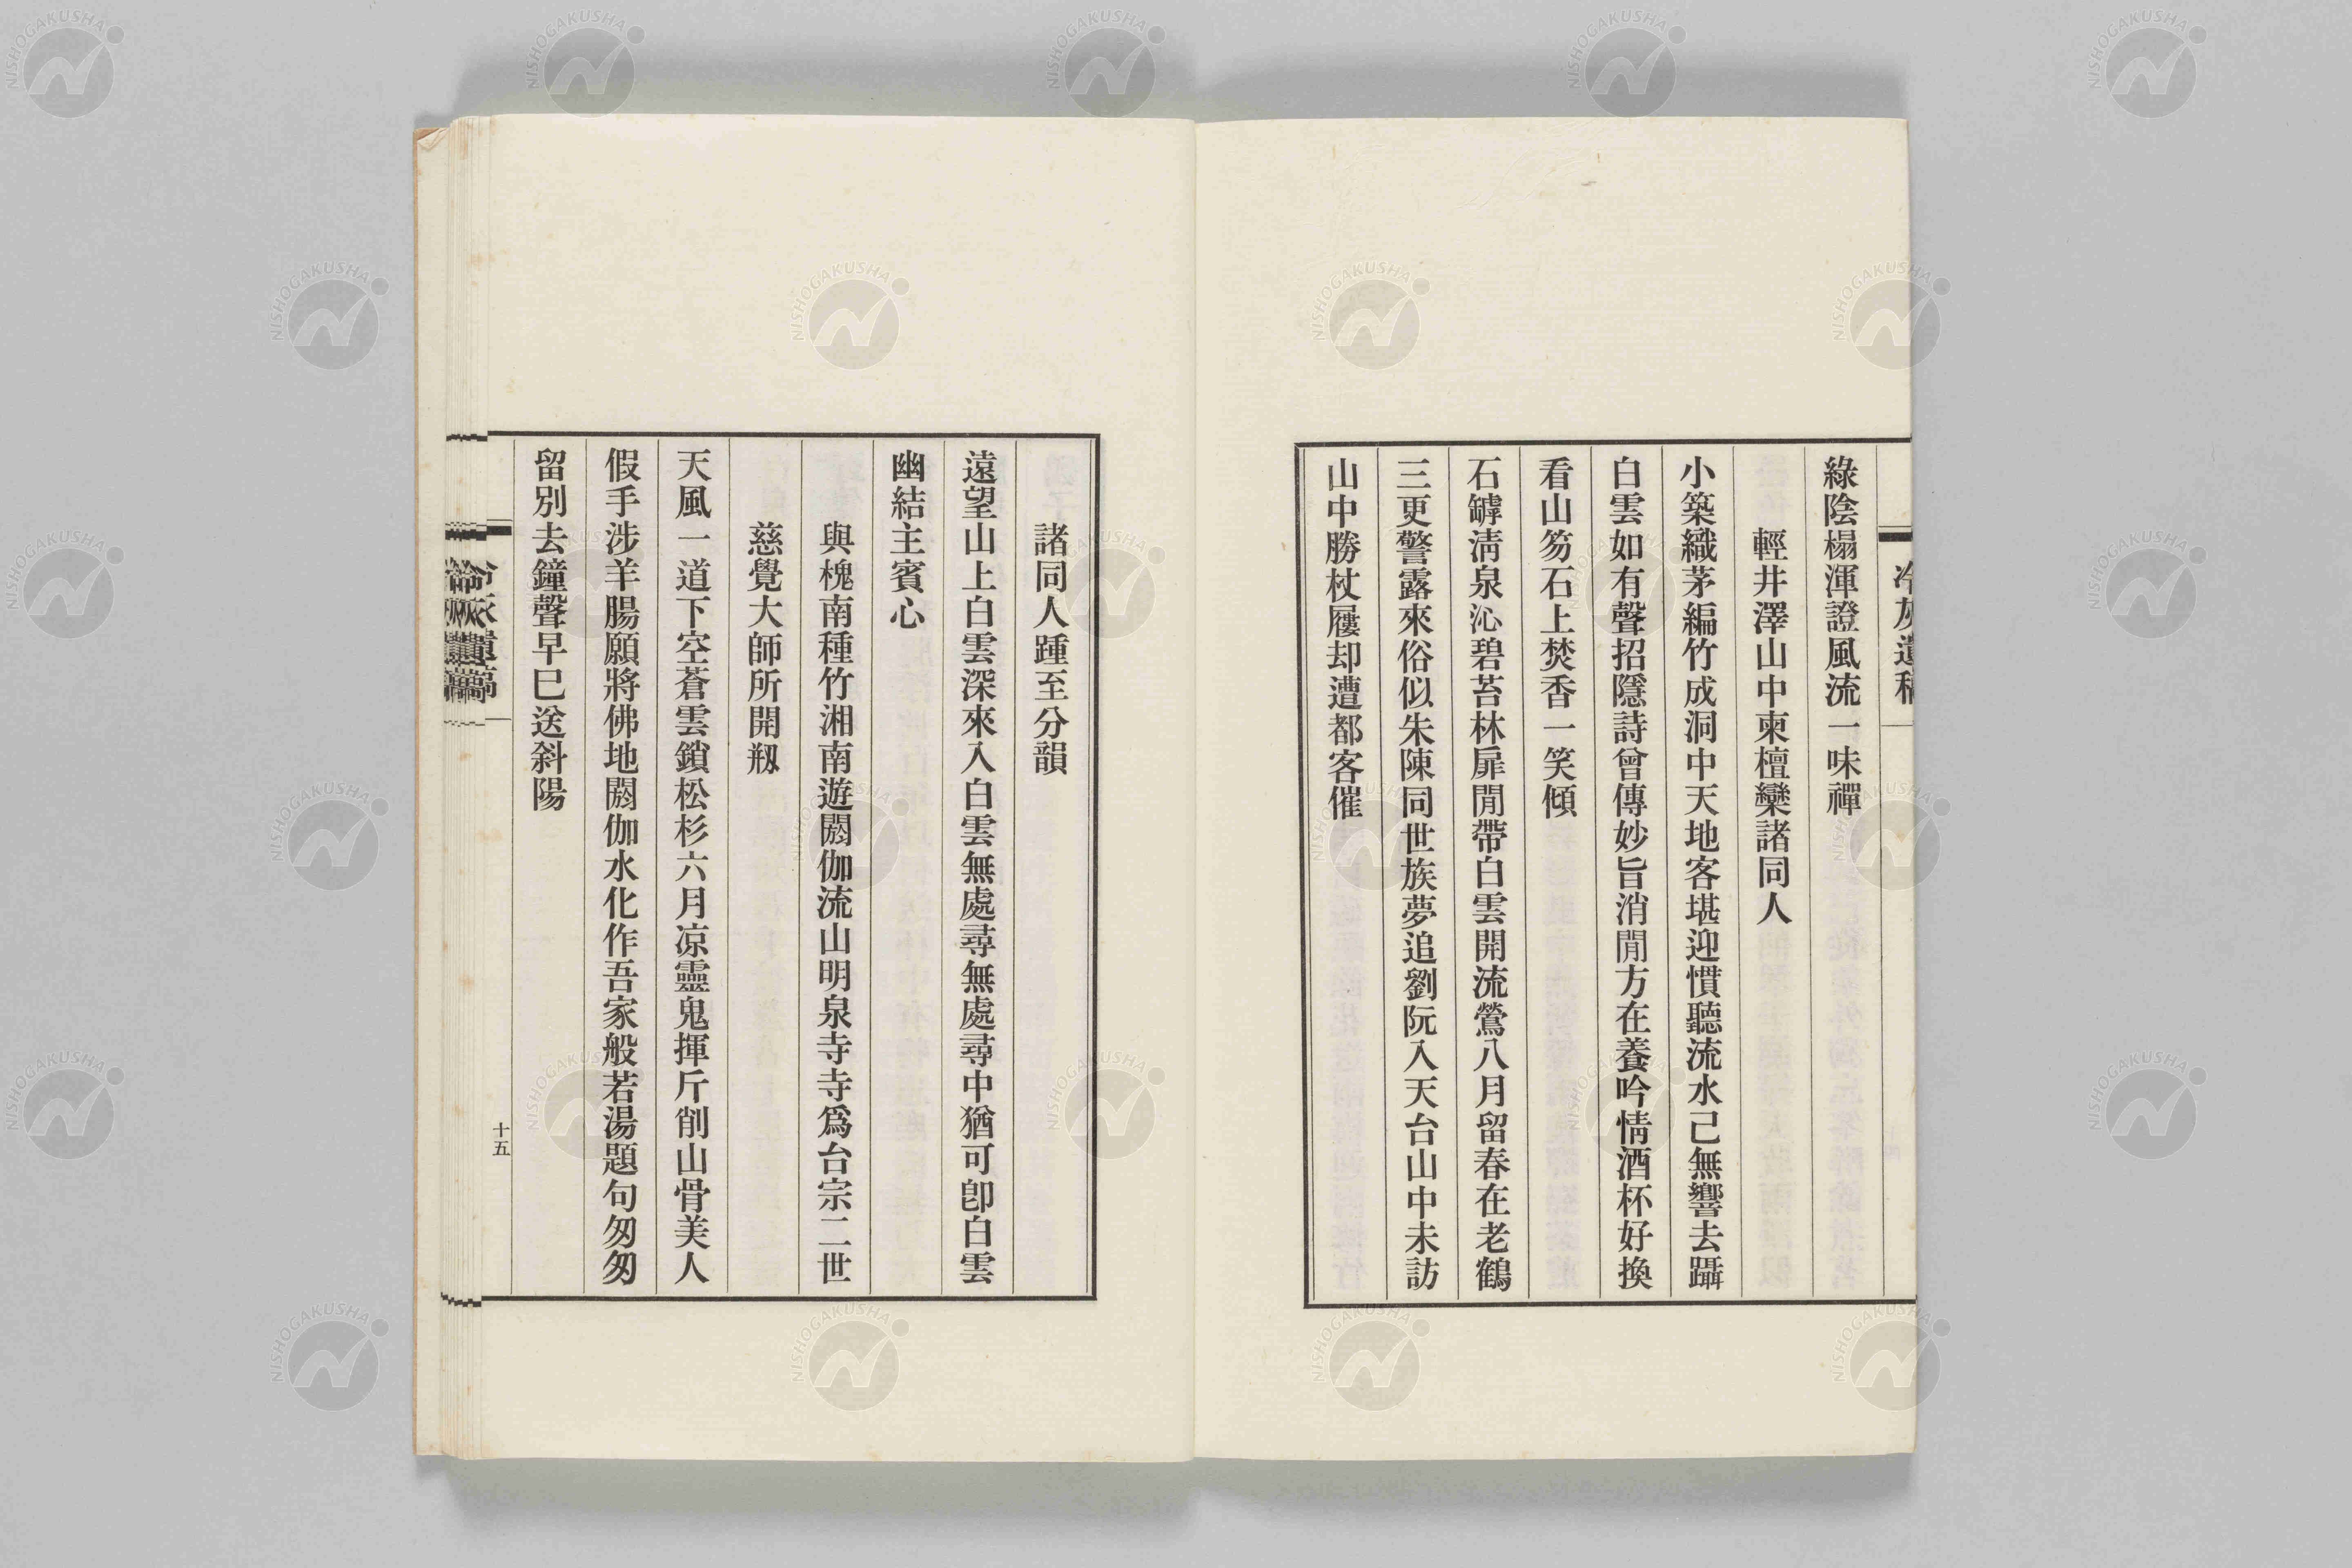 冷灰遺稿
綠陰榻渾證風流一味禪
輕井澤山中柬檀欒諸同人
小築織茅編竹成洞中天地客堪迎慣聽流水己無響去躡
白雲如有聲招隱詩曾傳妙旨消閒方在養吟情酒杯好換
看山笏石上焚香一笑傾
石罅淸泉沁碧苔林扉閒帶白雲開流鶯八月留春在老鶴
三更警露來俗似朱陳同世族夢追劉阮入天台山中未訪
山中勝杖屨却遭都客催
諸同人踵至分韻
遠望山上白雲深來入白雲無處尋無處尋中猶可卽白雲
幽結主賓心
與槐南種竹湘南遊閼伽流山明泉寺寺爲台宗二世
慈覺大師所開剏
天風一道下空蒼雲鎖松杉六月凉靈鬼揮斤削山骨美人
假手涉羊腸願將佛地閼伽水化作吾家般若湯題句匆匆
留別去鐘聲早巳送斜陽
冷灰遺稿
十五
NISHOGAKUSHA